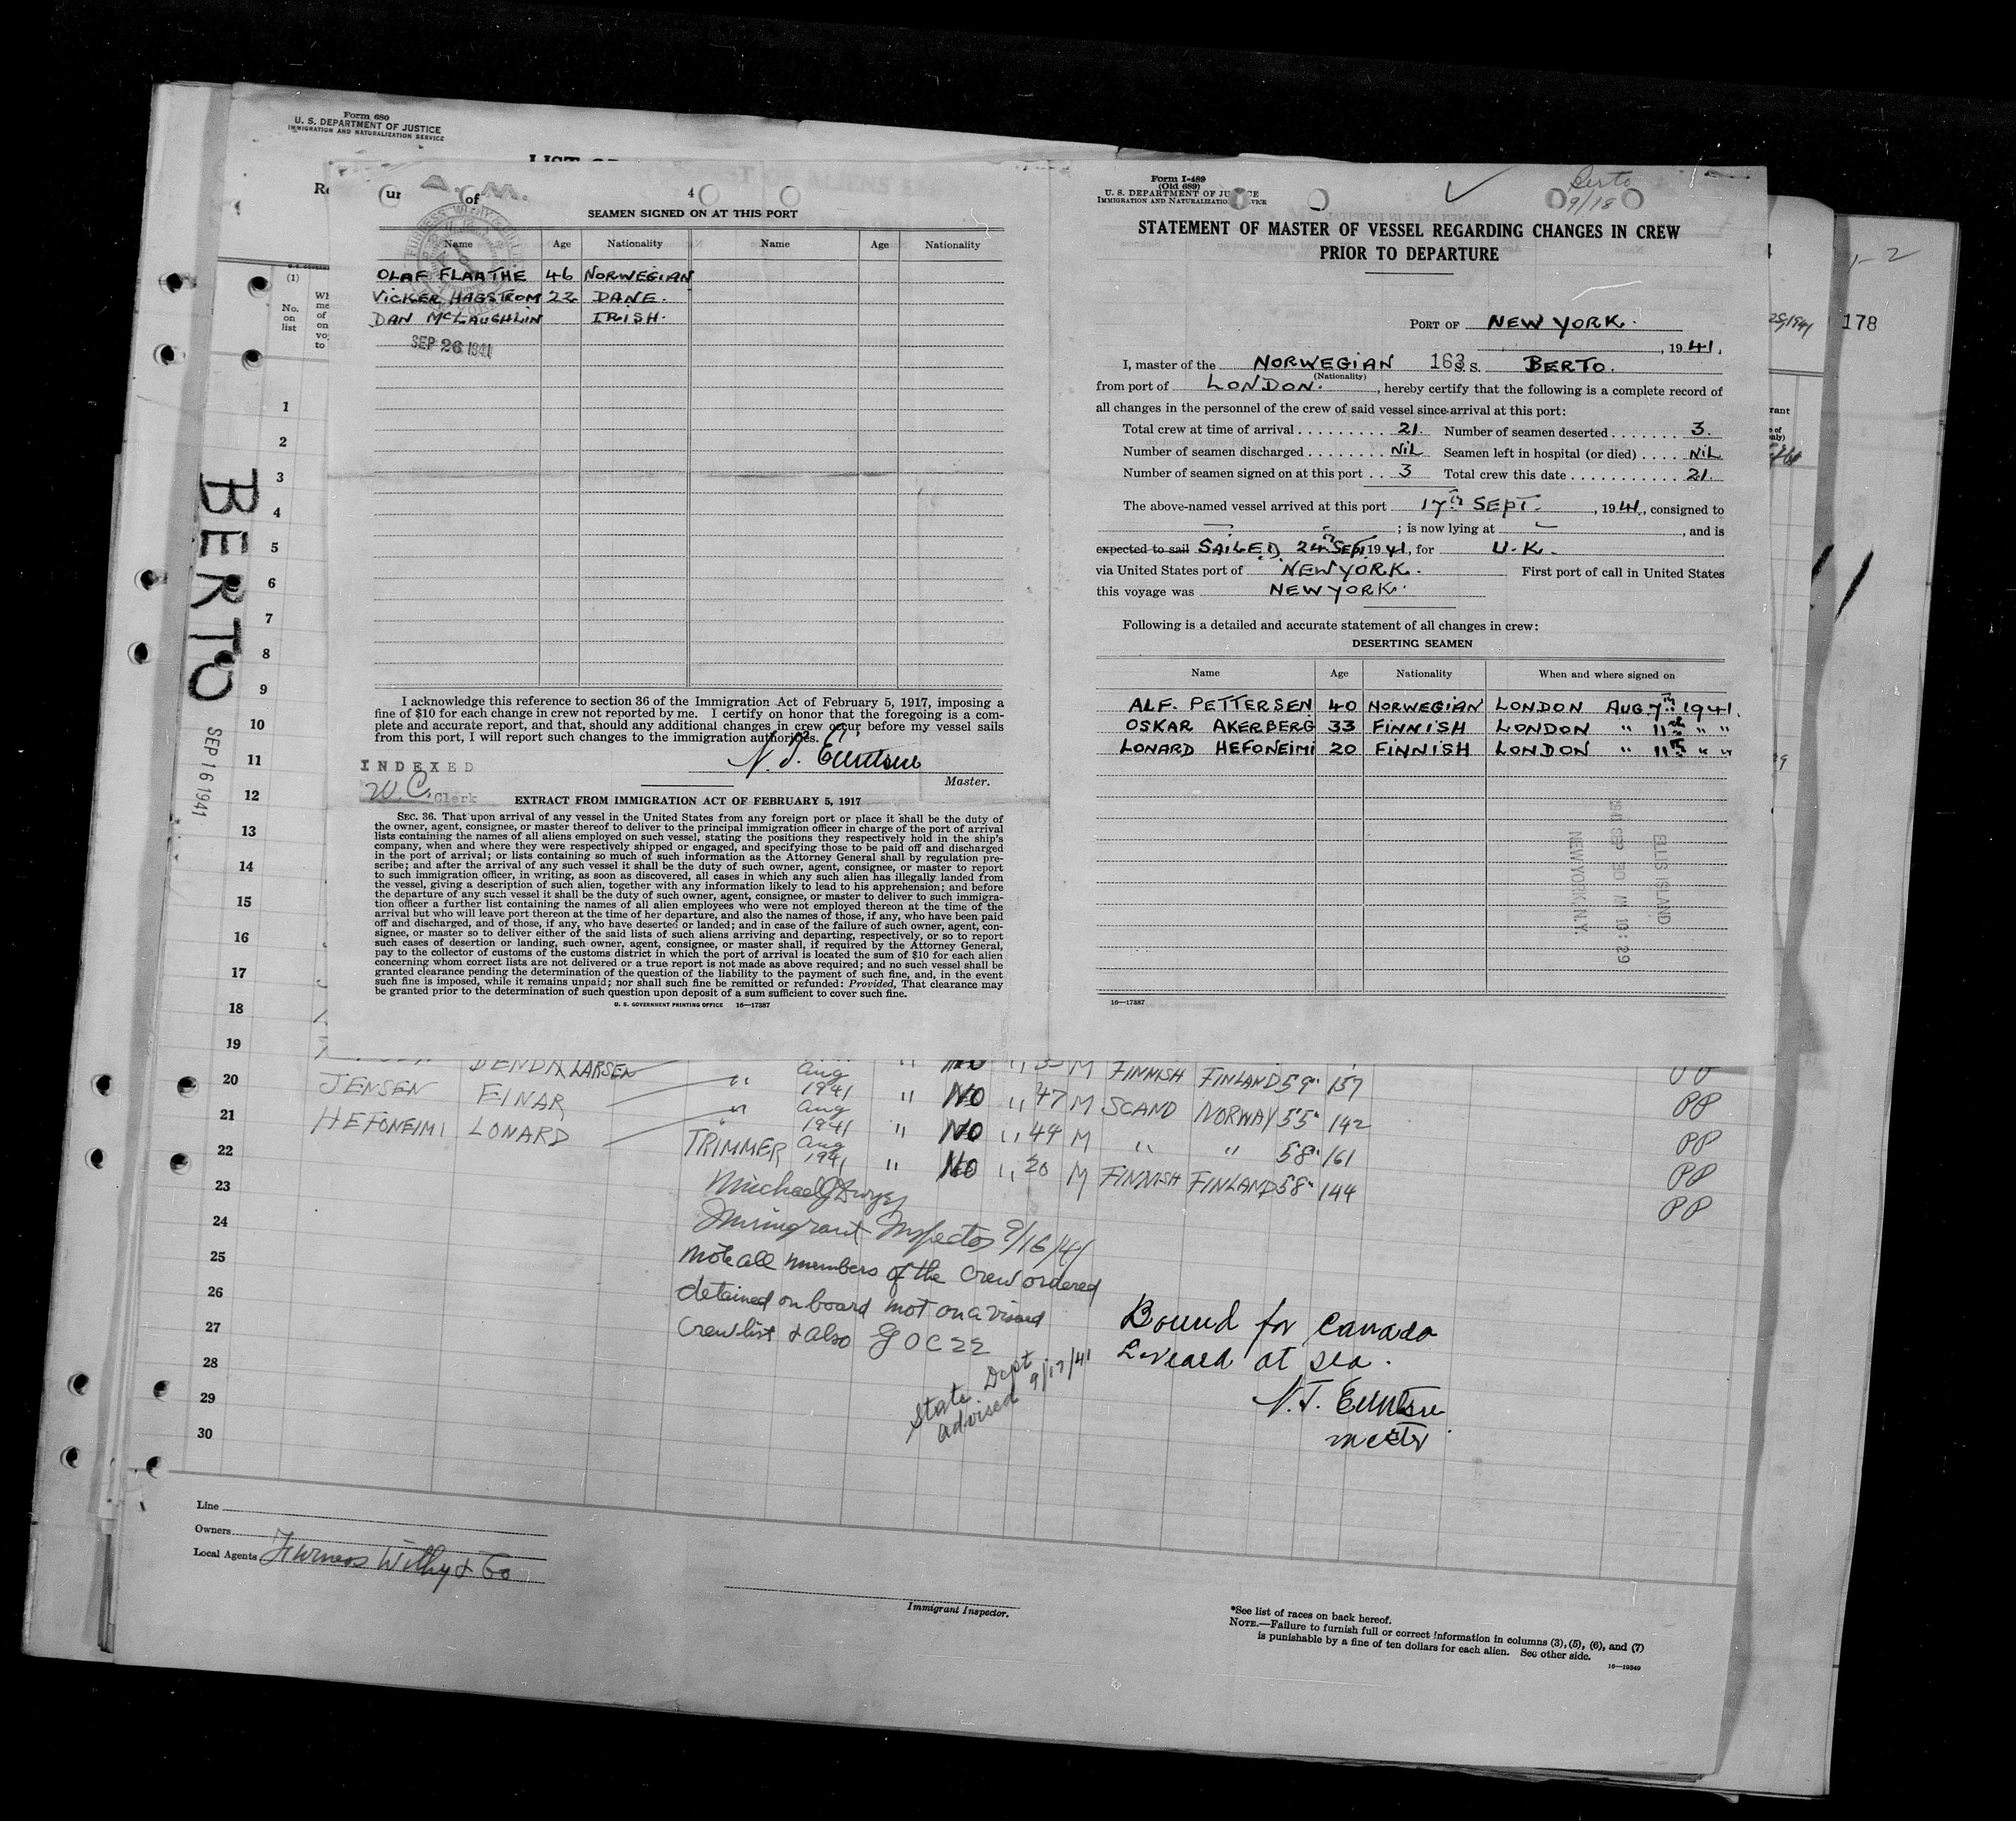 Form 680
U. S. DEPARTMENT OF JUSTICE
IMMIGRATION AND NATURALIZATION SERVICE
(1)
No.
on
list
BERTO
SEP 16 1941
1
2
3
4
5
6
7
8
9
10
11
12
13
14
15
16
17
18
19
20
21
22
23
24
25
26
27
28
29
30
A.M.
of
4
SEAMEN SIGNED ON AT THIS PORT
Name Age Nationality Name Age Nationality
OLAF FLAATHE 46 NORWEGIAN
VICKER HAGSTROM 22 DANE.
DAN McLAUGHLIN IRISH.
SEP 26 1941
I acknowledge this reference to section 36 of the Immigration Act of February 5, 1917, imposing a
fine of $10 for each change in crew not reported by me. I certify on honor that the foregoing is a com-
plete and accurate report, and that, should any additional changes in crew occur before my vessel sails
from this port, I will report such changes to the immigration authorities.
INDEXED
W. C. Clerk
Master.
EXTRACT FROM IMMIGRATION ACT OF FEBRUARY 5, 1917
SEC. 36. That upon arrival of any vessel in the United States from any foreign port or place it shall be the duty of
the owner, agent, consignee, or master thereof to deliver to the principal immigration officer in charge of the port of arrival
lists containing the names of all aliens employed on such vessel, stating the positions they respectively hold in the ship's
company, when and where they were respectively shipped or engaged, and specifying those to be paid off and discharged
in the port of arrival; or lists containing so much of such information as the Attorney General shall by regulation pre-
scribe; and after the arrival of any such vessel it shall be the duty of such owner, agent, consignee, or master to report
to such immigration officer, in writing, as soon as discovered, all cases in which any such alien has illegally landed from
the vessel, giving a description of such alien, together with any information likely to lead to his apprehension; and before
the departure of any such vessel it shall be the duty of such owner, agent, consignee, or master to deliver to such immigra-
tion officer a further list containing the names of all alien employees who were not employed thereon at the time of the
arrival but who will leave port thereon at the time of her departure, and also the names of those, if any, who have been paid
off and discharged, and of those, if any, who have deserted or landed; and in case of the failure of such owner, agent, con-
signee, or master so to deliver either of the said lists of such aliens arriving and departing, respectively, or so to report
such cases of desertion or landing, such owner, agent, consignee, or master shall, if required by the Attorney General,
pay to the collector of customs of the customs district in which the port of arrival is located the sum of $10 for each alien
concerning whom correct lists are not delivered or a true report is not made as above required; and no such vessel shall be
granted clearance pending the determination of the question of the liability to the payment of such fine, and, in the event
such fine is imposed, while it remains unpaid; nor shall such fine be remitted or refunded: Provided, That clearance may
be granted prior to the determination of such question upon deposit of a sum sufficient to cover such fine.
U. S. GOVERNMENT PRINTING OFFICE 16—17387
Form I-489
(Old 689)
U. S. DEPARTMENT OF JUSTICE
IMMIGRATION AND NATURALIZATION SERVICE
Berto
9/18
STATEMENT OF MASTER OF VESSEL REGARDING CHANGES IN CREW
PRIOR TO DEPARTURE
PORT OF NEW YORK.
, 1941.
I, master of the NORWEGIAN 163 S. S. BERTO.
(Nationality)
from port of LONDON. , hereby certify that the following is a complete record of
all changes in the personnel of the crew of said vessel since arrival at this port:
Total crew at time of arrival 21. Number of seamen deserted 3.
Number of seamen discharged NIL Seamen left in hospital (or died) NIL
Number of seamen signed on at this port 3 Total crew this date 21.
The above-named vessel arrived at this port 17th SEPT. , 1941, consigned to
; is now lying at , and is
expected to sail SAILED 24th SEPT. 1941, for U.K.
via United States port of NEW YORK. First port of call in United States
this voyage was NEW YORK.
Following is a detailed and accurate statement of all changes in crew:
DESERTING SEAMEN
Name Age Nationality When and where signed on
ALF. PETTERSEN 40 NORWEGIAN LONDON AUG. 7th 1941.
OSKAR AKERBERG 33 FINNISH LONDON " 11th " "
LONARD HEFONEIMI 20 FINNISH LONDON " 11th " "
ELLIS ISLAND
1941 SEP 30 AM 10:29
NEW YORK N.Y.
16—17387
178
LARSEN Aug 1941 " NO " 35 M FINNISH FINLAND 59" 157 PP
JENSEN EINAR " Aug 1941 " NO " 47 M SCAND NORWAY 55" 142 PP
" NO " 49 M " " 58" 161 PP
HEFONEIMI LONARD TRIMMER Aug 1941 " NO " 20 M FINNISH FINLAND 58" 144 PP
Michael J Dwyer
Immigrant Inspector 9/16/41
Note all members of the crew ordered
detained on board not on a visaed
Crew list & also G O C 22
State Dept
advised 9/17/41
Bound for Canada
at sea.
Line
Owners
Local Agents Furness Withy & Co
Immigrant Inspector.
*See list of races on back hereof.
NOTE.—Failure to furnish full or correct information in columns (3), (5), (6), and (7)
is punishable by a fine of ten dollars for each alien. See other side.
16—19349